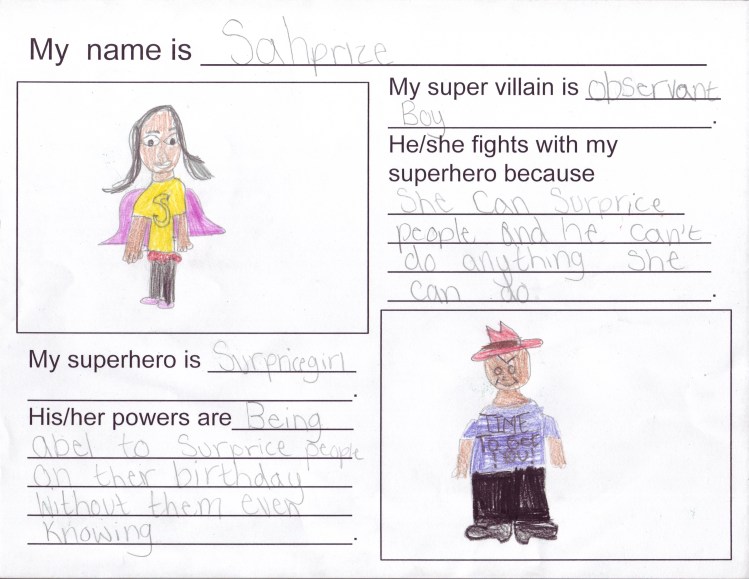 My name is Sahprize
S
My superhero is Surpricegirl
His/her powers are Being
abel to Surprice people
on their birthday
without them even
knowing.
My super villain is observant
Boy.
He/she fights with my
superhero because
She Can Surprice
people and he can't
do anything She
can do.
TIME
TO GET
YOU!